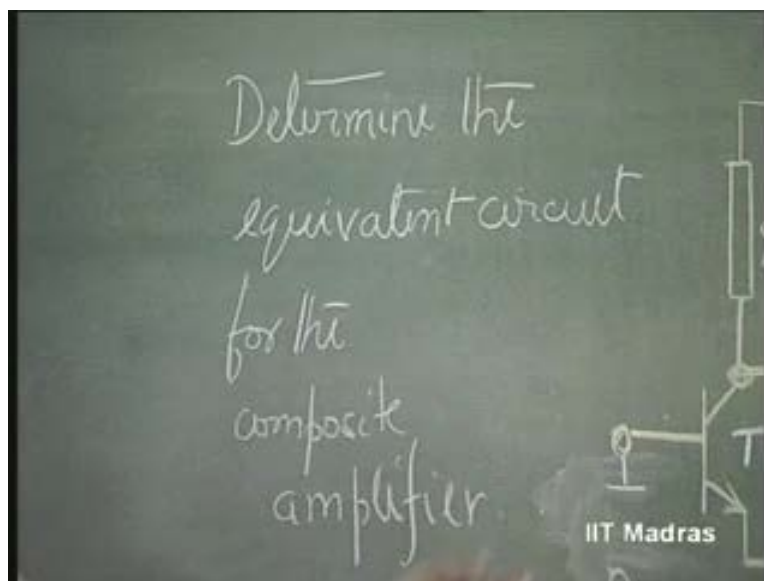 Determine the
equivalent circuit
for the
composite
amplifier.
T
IIT Madras